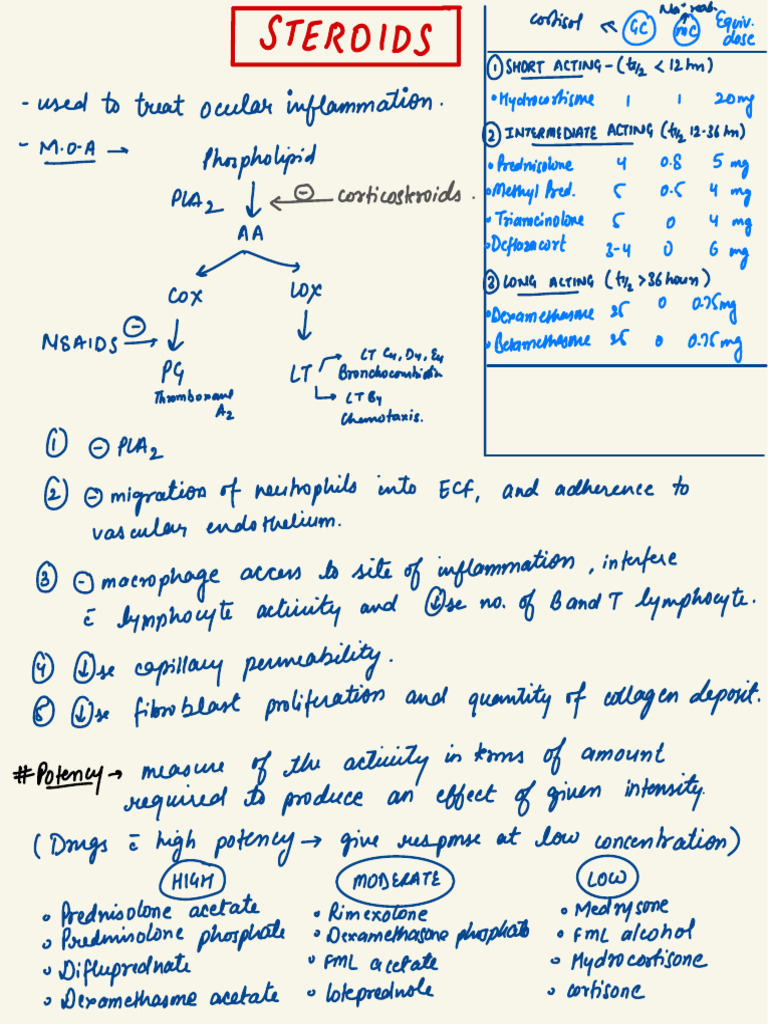 STEROIDS
- used to treat ocular inflammation.
- M.O.A →
Phospholipid
PLA2 ⊖ corticosteroids.
AA
COX LOX
NSAIDS ⊖
PG LT
Thromboxane A2
LT C4, D4, E4
Bronchoconstriction
LT B4
Chemotaxis.
cortisol < GC MC Equiv. dose
① SHORT ACTING - (t1/2 < 12 hrs)
• Hydrocortisone 1 1 20 mg
② INTERMEDIATE ACTING (t1/2 12-36 hrs)
• Prednisolone 4 0.8 5 mg
• Methyl Pred. 5 0.5 4 mg
• Triamcinolone 5 0 4 mg
• Deflazacort 3-4 0 6 mg
③ LONG ACTING (t1/2 >36 hours)
• Dexamethasone 25 0 0.75 mg
• Betamethasone 25 0 0.75 mg
① ⊖ PLA2
② ⊖ migration of neutrophils into ECF, and adherence to
vascular endothelium.
③ ⊖ macrophage access to site of inflammation, interfere
c̄ lymphocyte activity and ↓se no. of B and T lymphocyte.
④ ↓se capillary permeability.
⑤ ↓se fibroblast proliferation and quantity of collagen deposit.
# Potency → measure of the activity in terms of amount
required to produce an effect of given intensity.
(Drugs c̄ high potency → give response at low concentration)
HIGH MODERATE LOW
• Prednisolone acetate • Rimexolone • Medrysone
• Prednisolone phosphate • Dexamethasone phosphate • FML alcohol
• Difluprednate • FML acetate • Hydrocortisone
• Dexamethasone acetate • loteprednole • cortisone